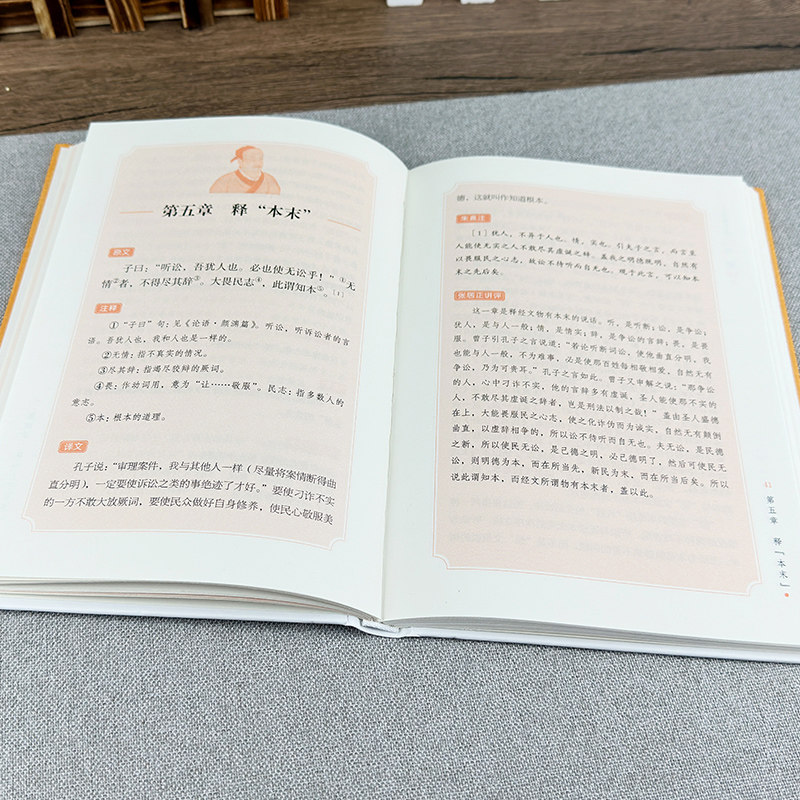 第五章 释“本末”
原文
子曰：“听讼，吾犹人也。必也使无讼乎！”①无
情②者，不得尽其辞③。大畏民志④，此谓知本⑤。[1]
注释
①“子曰”句：见《论语·颜渊篇》。听讼，听诉讼者的言
语。吾犹人也，我和人也是一样的。
②无情：指不真实的情况。
③尽其辞：指竭尽狡辩的厥词。
④畏：作动词用，意为“让……敬服”。民志：指多数人的
意志。
⑤本：根本的道理。
译文
孔子说：“审理案件，我与其他人一样（尽量将案情断得曲
直分明），一定要使诉讼之类的事绝迹了才好。”要使刁诈不实
的一方不敢大放厥词，要使民众做好自身修养，使民心敬服美
德，这就叫作知道根本。
朱熹注
[1] 犹人，不异于人也。情，实也。引夫子之言，而言圣
人能使无实之人不敢尽其虚诞之辞。盖我之明德既明，自然有
以畏服民之心志，故讼不待听而自无也。观于此言，可以知本
末之先后矣。
张居正讲评
这一章是释经文物有本末的说话。听，是听断；讼，是争讼；
犹人，是与人一般；情，是情实；辞，是争讼的言辞；畏，是畏
服。曾子引孔子之言说道：“若论听断词讼，使他曲直分明，我
也能与人一般，不为难事，必是使那百姓每相敬相爱，自然无有
争讼，乃为可贵耳。”孔子之言如此。曾子又申解之说：“那争讼
的人，心中刁诈不实，他的言辩多有虚诞，圣人能使那不实的
人，不敢尽其虚诞之辞者，岂是刑法以制之哉！”盖由圣人盛德
在上，大能畏服民之心志，使之化诈伪而为诚实，自然无有颠倒
曲直，以虚辞相争的，所以讼不待听而自无也。夫无讼，是民德
之新，所以使民无讼，是己德之明，必己德明了，然后可使民无
讼，则明德为本，而在所当先，新民为末，而在所当后矣。所以
说此谓知本，而经文所谓物有本末者，盖以此。
第五章 释「本末」